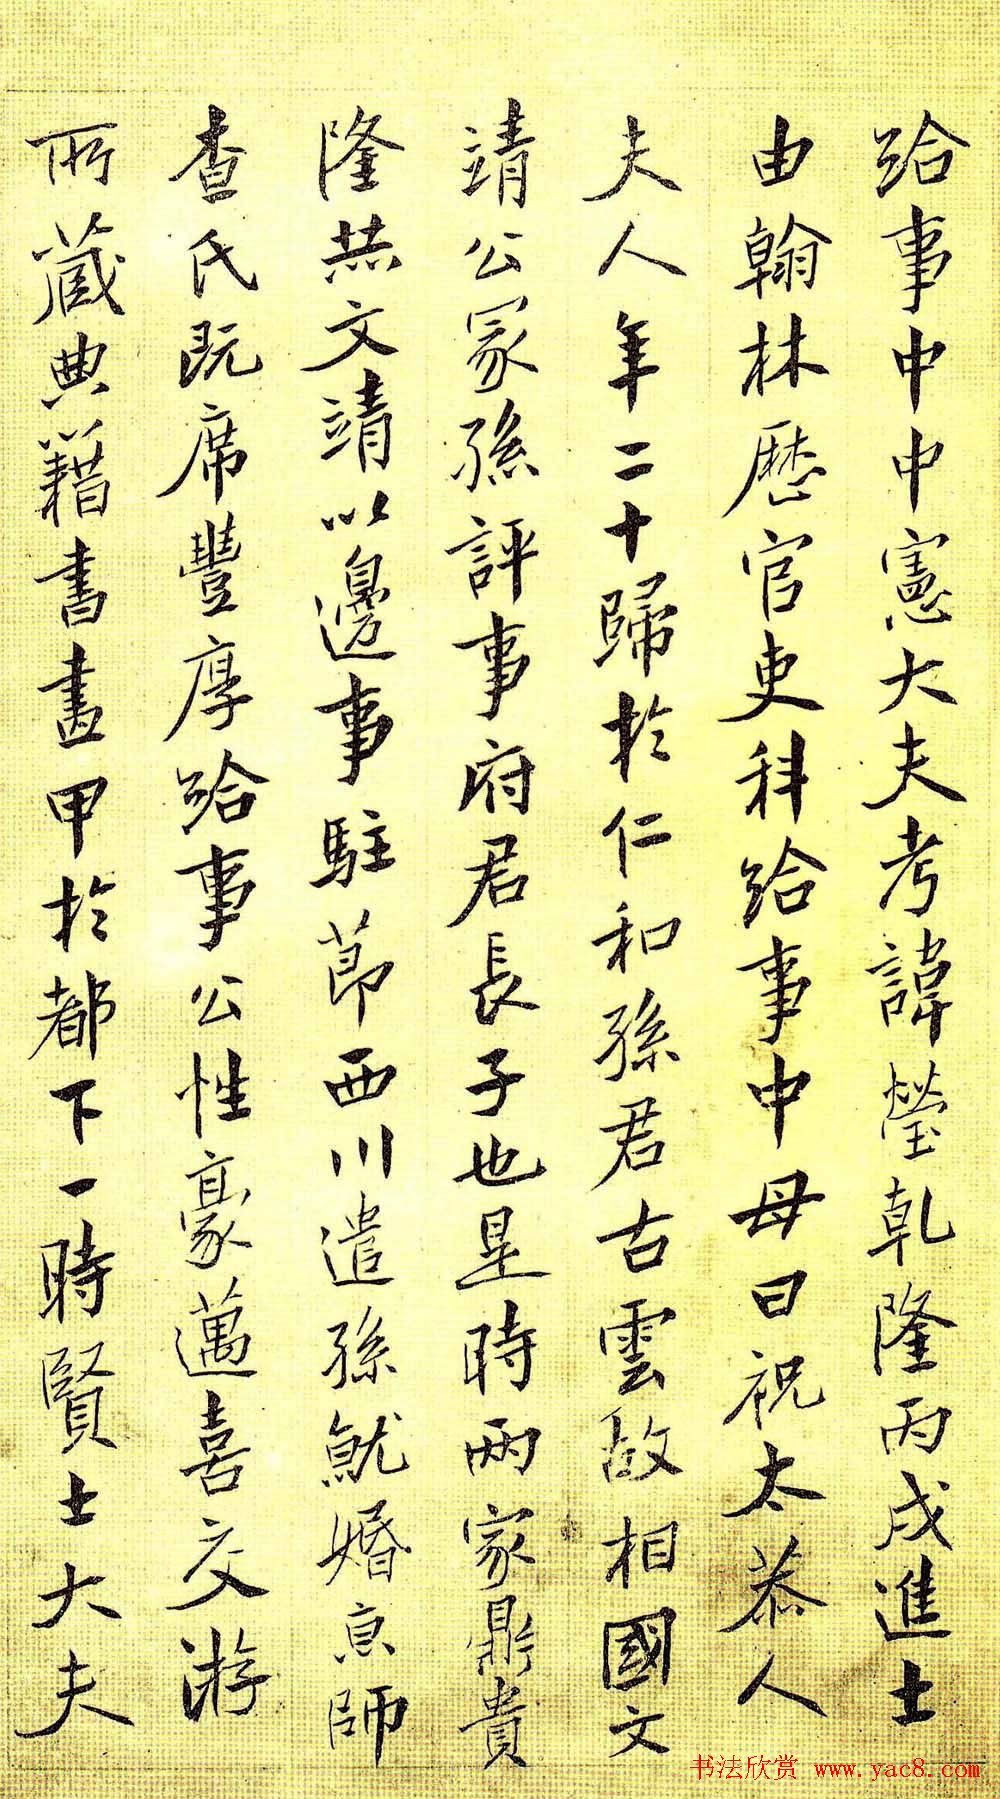 給事中中憲大夫考諱瑩乾隆丙戌進士
由翰林歷官吏科給事中母曰祝太恭人
夫人年二十歸於仁和孫君古雲故相國文
靖公冢孫評事府君長子也是時兩家鼎貴
隆赫文靖以邊事駐節西川遣孫就婚京師
查氏既席豐厚給事公性豪邁喜交游
所藏典籍書畫甲於都下一時賢士大夫
书法欣赏 www.yac8.com